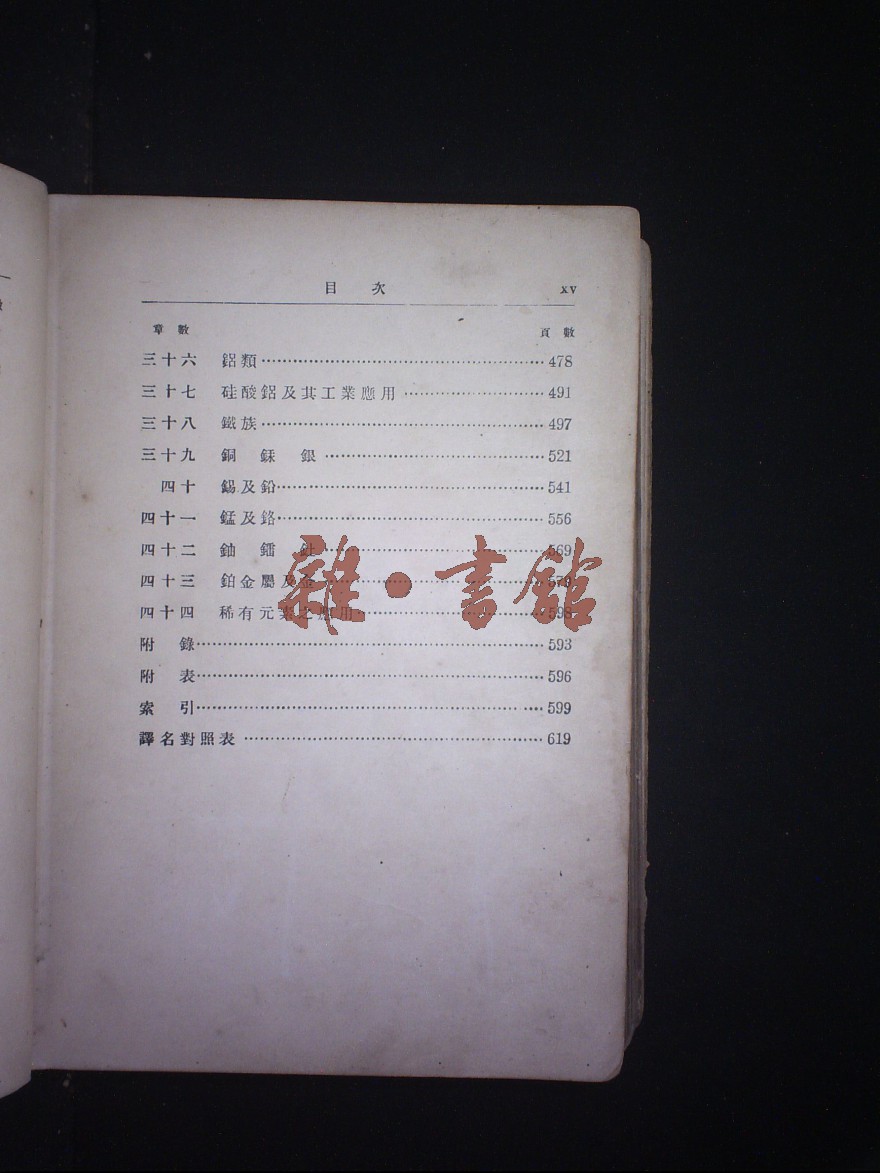 目 次 xv
章 數 頁 數
三十六 鋁類 478
三十七 硅酸鋁及其工業應用 491
三十八 鐵族 497
三十九 銅 銾 銀 521
四十 錫及鉛 541
四十一 錳及鉻 556
四十二 鈾 鐳 釷 569
四十三 鉑金屬及金 579
四十四 稀有元素之應用
附 錄 593
附 表 596
索 引 599
譯名對照表 619
雜·書館